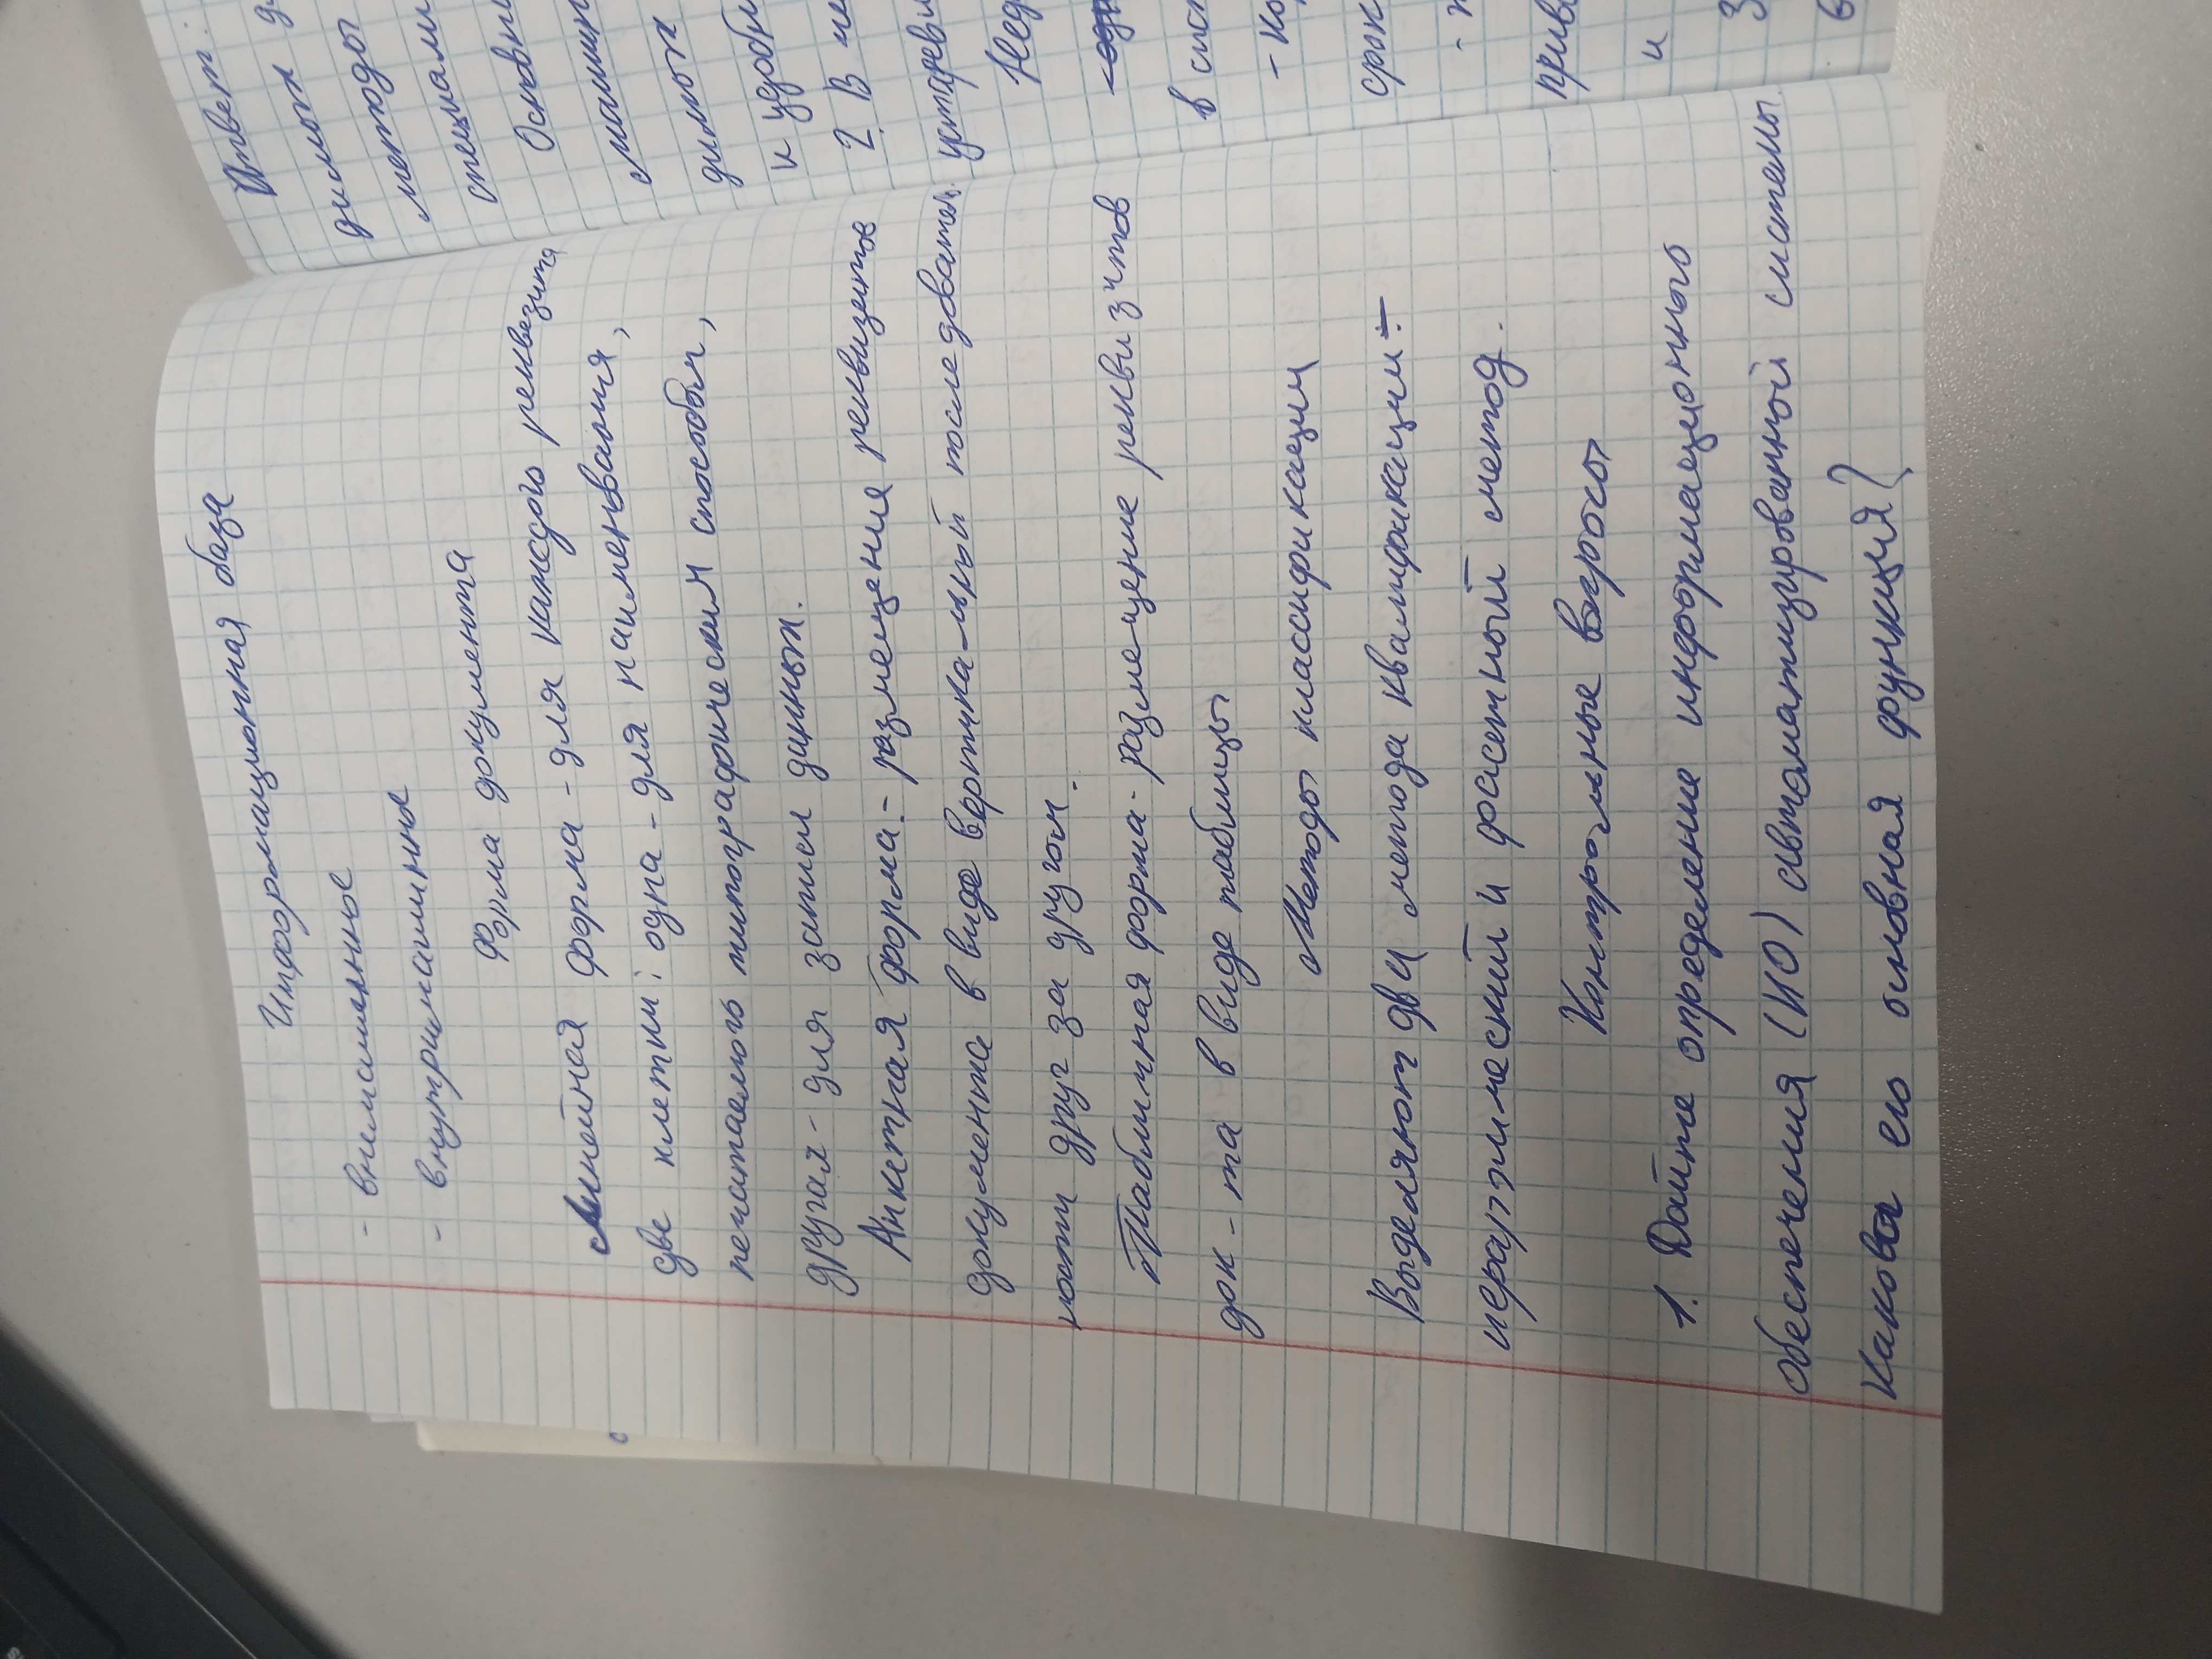 Информационная база
- внемашенное
- внутримашинные
Форма документа
Линейная форма - для каждого реквезита
две клетки: одна - для наименвания,
печатаемого типографическим способом,
другая - для записи данных.
Анкетная форма - размещения реквизетов
документа в виде вертикальный последовател.
ности друг за другом.
Табличная форма - размещение реквизитов
док-та в виде таблицы
Методы классификации
Выделяют два метода квалификации:
иерархический и фасетный метод.
Контрольные вопросы
1. Дайте определение информационного
обеспечения (ИО) автоматизированной системы.
Какова его основная функция?
Ответ:
димых
методы
специали
Основн
машин
димых
и удобн
2. В
устареви
Нед
в сист
- ко
срок
-
приве
и